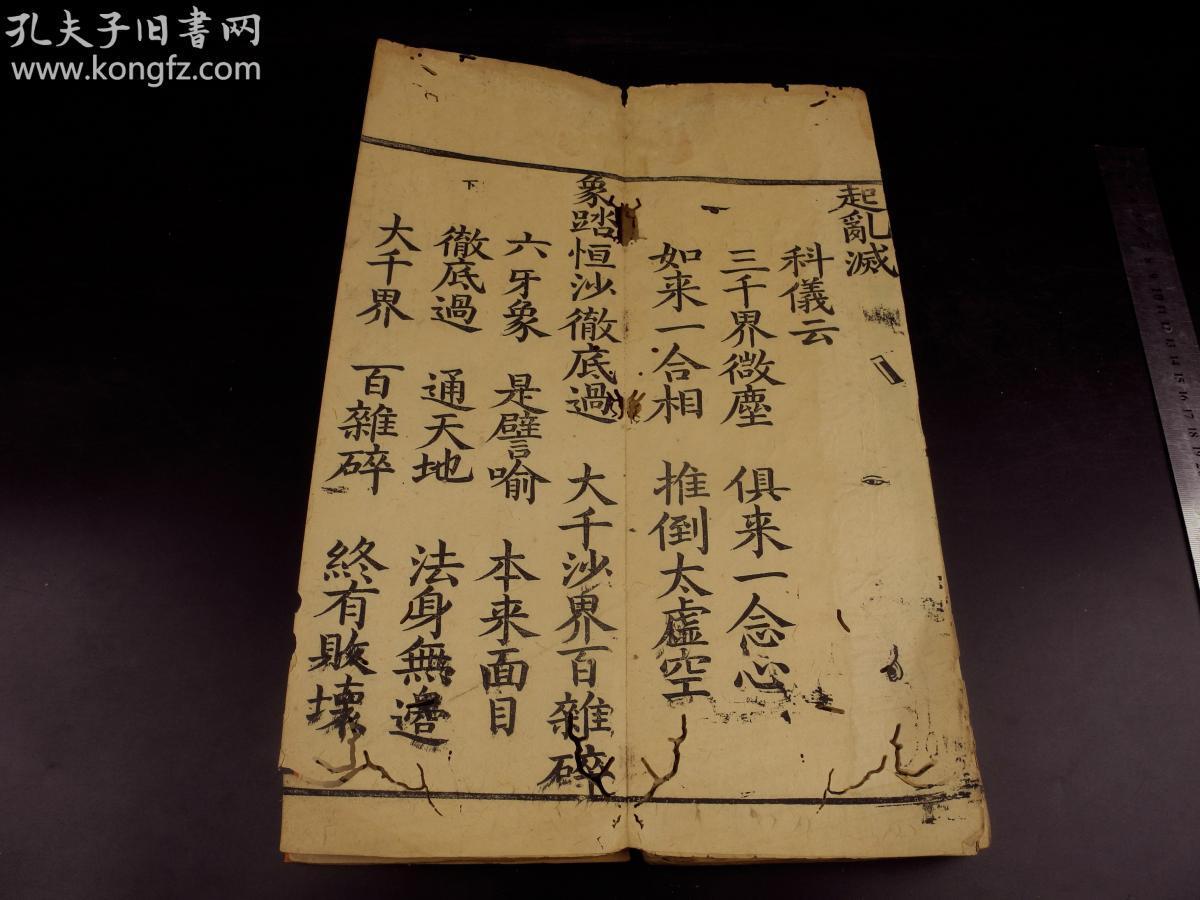 孔夫子旧書网
www.kongfz.com
起亂滅
科儀云
三千界微塵 俱来一念心
如来一合相 推倒太虛空
象踏恒沙徹底過 大千沙界百雜碎
六牙象 是譬喻 本来面目
徹底過 通天地 法身無邉
大千界 百雜碎 終有敗壞
下